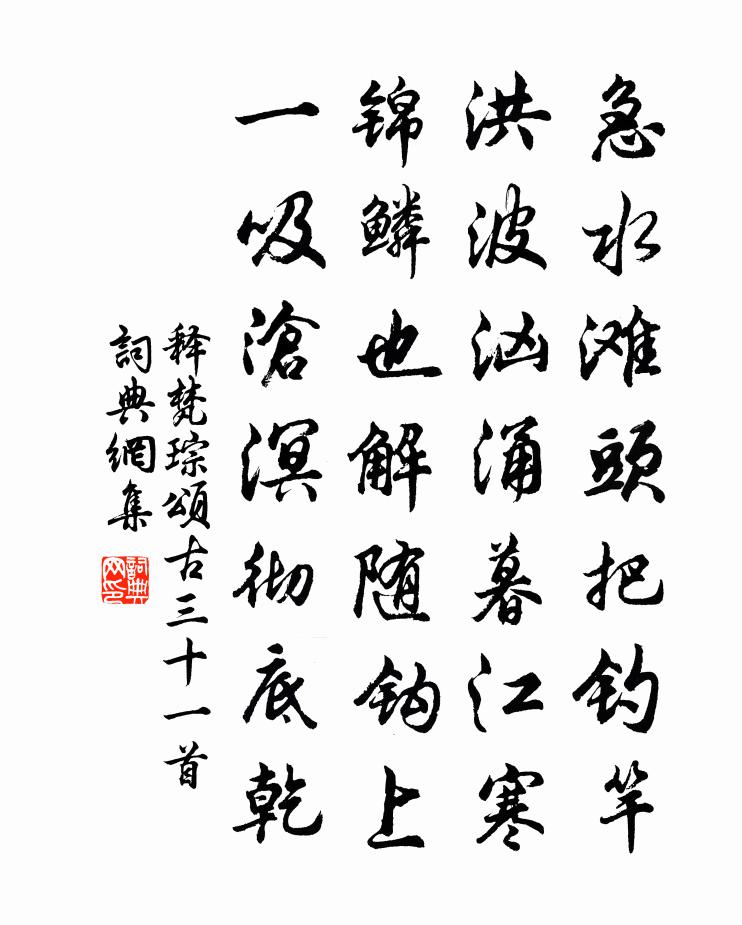 急水滩頭把钓竿
洪波汹涌暮江寒
锦鳞也解随钩上
一吸滄溟彻底乾
释梵琮頌古三十一首
詞典網集
詞典网印